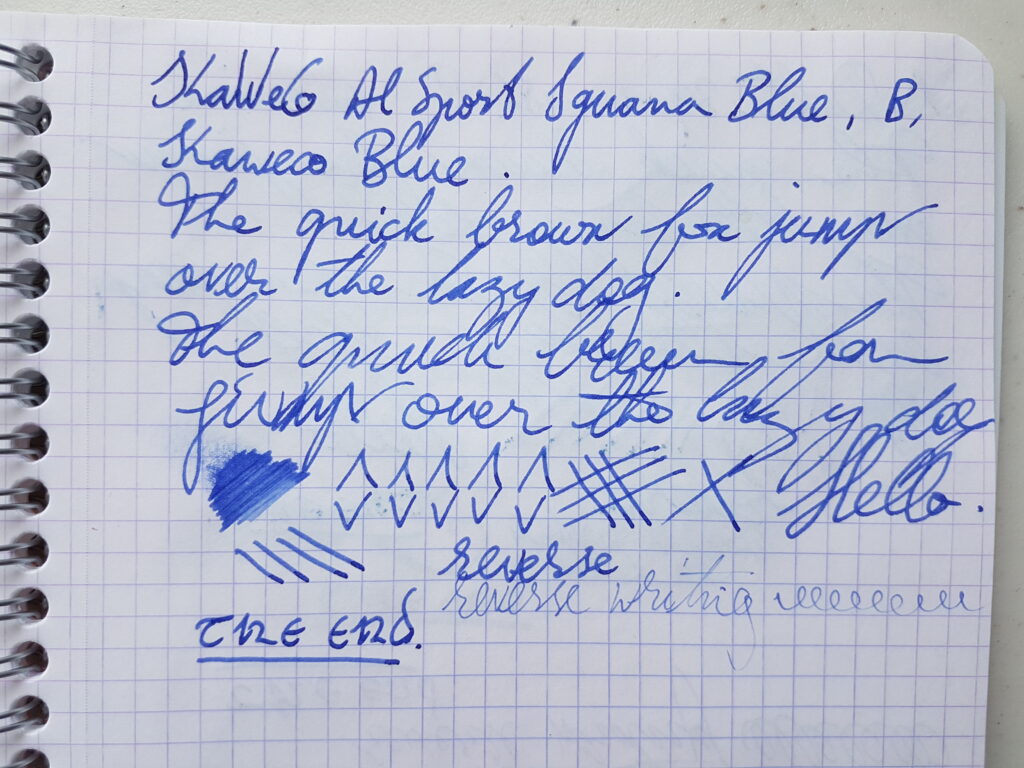 KaWeCo Al Sport Iguana Blue, B,
Kaweco Blue.
The quick brown fox jump
over the lazy dog.
The quick brown fox
jump over the lazy dog
Hello.
reverse
reverse writing
THE END.